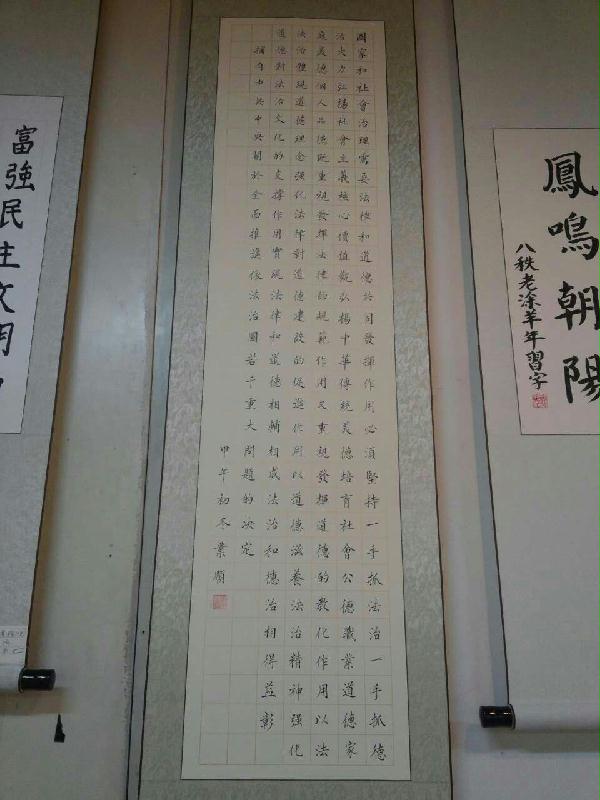 鳳鳴朝陽
八秩老涂羊年習字
國家和社會治理需要法律和道德共同發揮作用必須堅持一手抓法治一手抓德
治大力弘揚社會主義核心價值觀弘揚中華傳統美德培育社會公德職業道德家
庭美德個人品德既重視發揮法律的規範作用又重視發揮道德的教化作用以法
法治體現道德理念強化法律對道德建設的促進作用以道德滋養法治精神強化
道德對法治文化的支撐作用實現法律和道德相輔相成法治和德治相得益彰
摘自中共中央關於全面推進依法治國若干重大問題的決定
甲午初冬業
富強民主文明